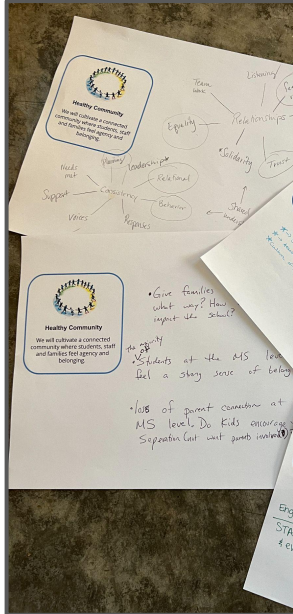 Healthy Community
We will cultivate a connected
community where students, staff
and families feel agency and
belonging.
Listening
Team
Relationships
Equality
*Solidarity
Trust
Shared
Planning
Leadership*
Needs
met
Relational
Support
Consistency
Behavior
Voices
Healthy Community
We will cultivate a connected
community where students, staff
and families feel agency and
belonging.
•Give families
what way? How
impact the school?
the majority
of
•Students at the MS leve
feel a strong sense of belong
•loss of parent connection at
MS level. Do Kids encourage
Seperation (not want parents involved)
Eng
STA